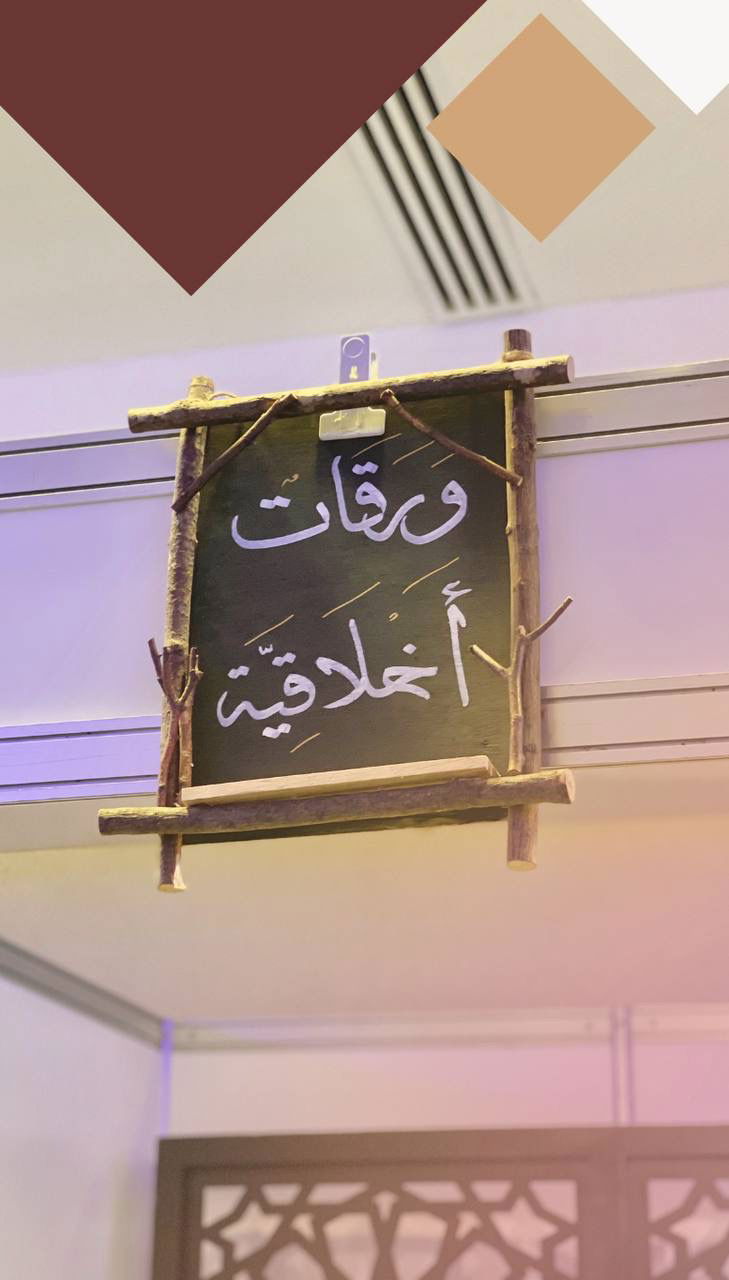 وَرَقَاتُ
أَخْلَاقِيَّة